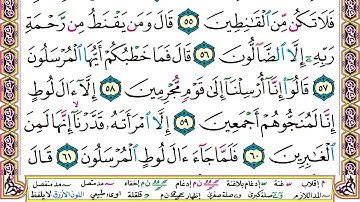 فَلَا تَكُن مِّنَ ٱلْقَٰنِطِينَ ٥٥ قَالَ وَمَن يَقْنَطُ مِن رَّحْمَةِ
رَبِّهِۦٓ إِلَّا ٱلضَّآلُّونَ ٥٦ قَالَ فَمَا خَطْبُكُمْ أَيُّهَا ٱلْمُرْسَلُونَ
٥٧ قَالُوٓا۟ إِنَّآ أُرْسِلْنَآ إِلَىٰ قَوْمٍ مُّجْرِمِينَ ٥٨ إِلَّآ ءَالَ لُوطٍ
إِنَّا لَمُنَجُّوهُمْ أَجْمَعِينَ ٥٩ إِلَّا ٱمْرَأَتَهُۥ قَدَّرْنَآ إِنَّهَا لَمِنَ
ٱلْغَٰبِرِينَ ٦٠ فَلَمَّا جَآءَ ءَالَ لُوطٍ ٱلْمُرْسَلُونَ ٦١ قَالَ